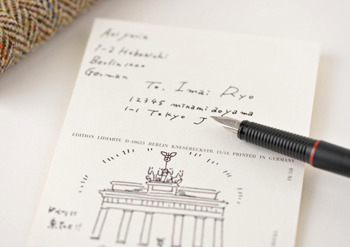 Aoi junia
1-2 Hobonichi
Berlin 1000
German
To. Imai Ryo
12345 minami aoyama
1-1 Tokyo J
EDITION LIDIARTE D-10623 BERLIN KNESEBECKSTR. 13/14 PRINTED IN GERMANY